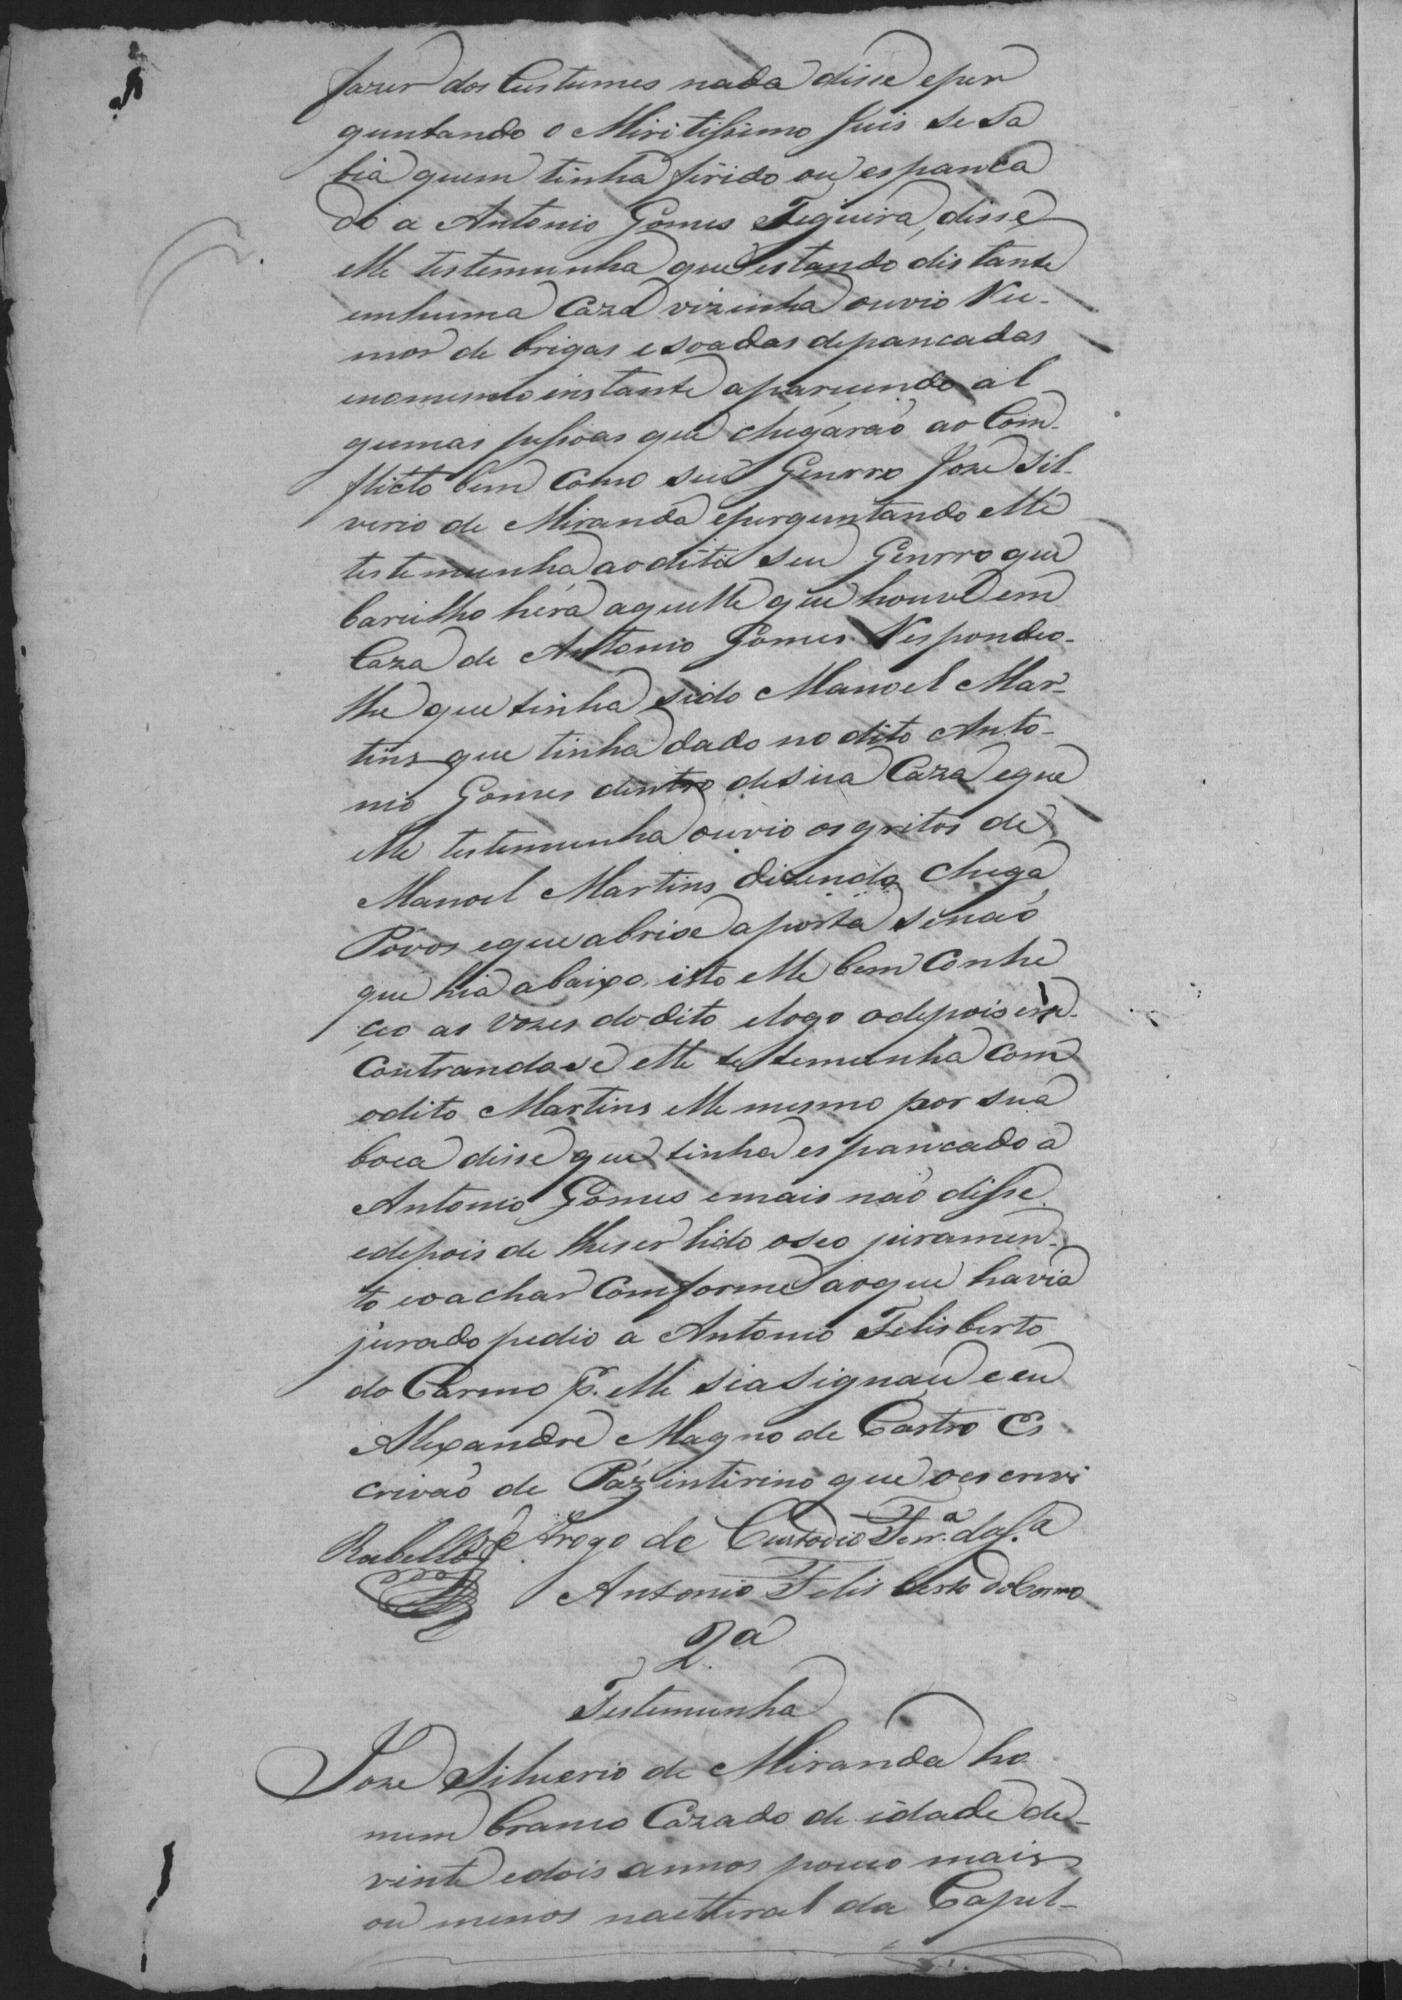 fazer dos Custumes nada disse eper
guntando o Miritissimo Juis se sa
bia quem tinha firido ou espanca
do a Antonio Gomes Tiqueira, disse
elle testemunha que estando distante
emhuma Caza vizinha ouvio Ru-
mor de brigas esoadas depancadas
enomesmo instante aparecendo al
gumas pessoas que chegárão ao Com-
flicto bem como seu Genrro Joze Sil-
verio de Miranda eperguntando elle
testemunha aodito seu Genrro que
barulho hera aquelle que houve em
Caza de Antonio Gomes Respondeo-
lhe que tinha sido Manoel Mar-
tins que tinha dado no dito Anto-
nio Gomes dentro desua Caza eque
elle testemunha ouvio osgritos de
Manoel Martins dizendo chega
Povos eque abrise aporta senão
que hia abaixo, isto elle bem Conhe
ceo as vozes dodito elogo odepois en-
Contrandose elle testemunha Com
odito Martins elle mesmo por sua
boca disse que tinha espancado a
Antonio Gomes emais não disse
edepois de lheser lido oseo juramen-
to eoachar Comforme aoque havia
jurado pedio a Antonio Felisberto
do Carmo p. elle siasignau e eu
Alexandre Magno de Castro Es
crivão de Páz intirino que oescrivi
Rabello Arogo de Custodio Ferr.ª da S.ª
Antonio Felisberto do Carmo
2ª
Testemunha
Joze Silverio de Miranda ho
mem branco Cazado de idade de-
vinte edois annos pouco mais
ou menos natural da Capel-